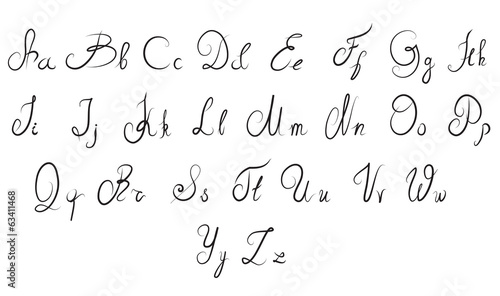 Aa Bb Cc Dd Ee Ff Gg Hh
Ii Jj Kk Ll Mm Nn Oo Pp
Qq Rr Ss Tt Uu Vv Ww
Yy Zz
Adobe Stock | #63411468